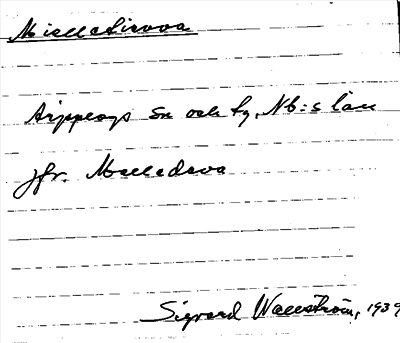 Miellatievva
Arjeplogs sn och tg, Nb:s län
jfr. Mielladeva
Sigvard Wallström, 1939